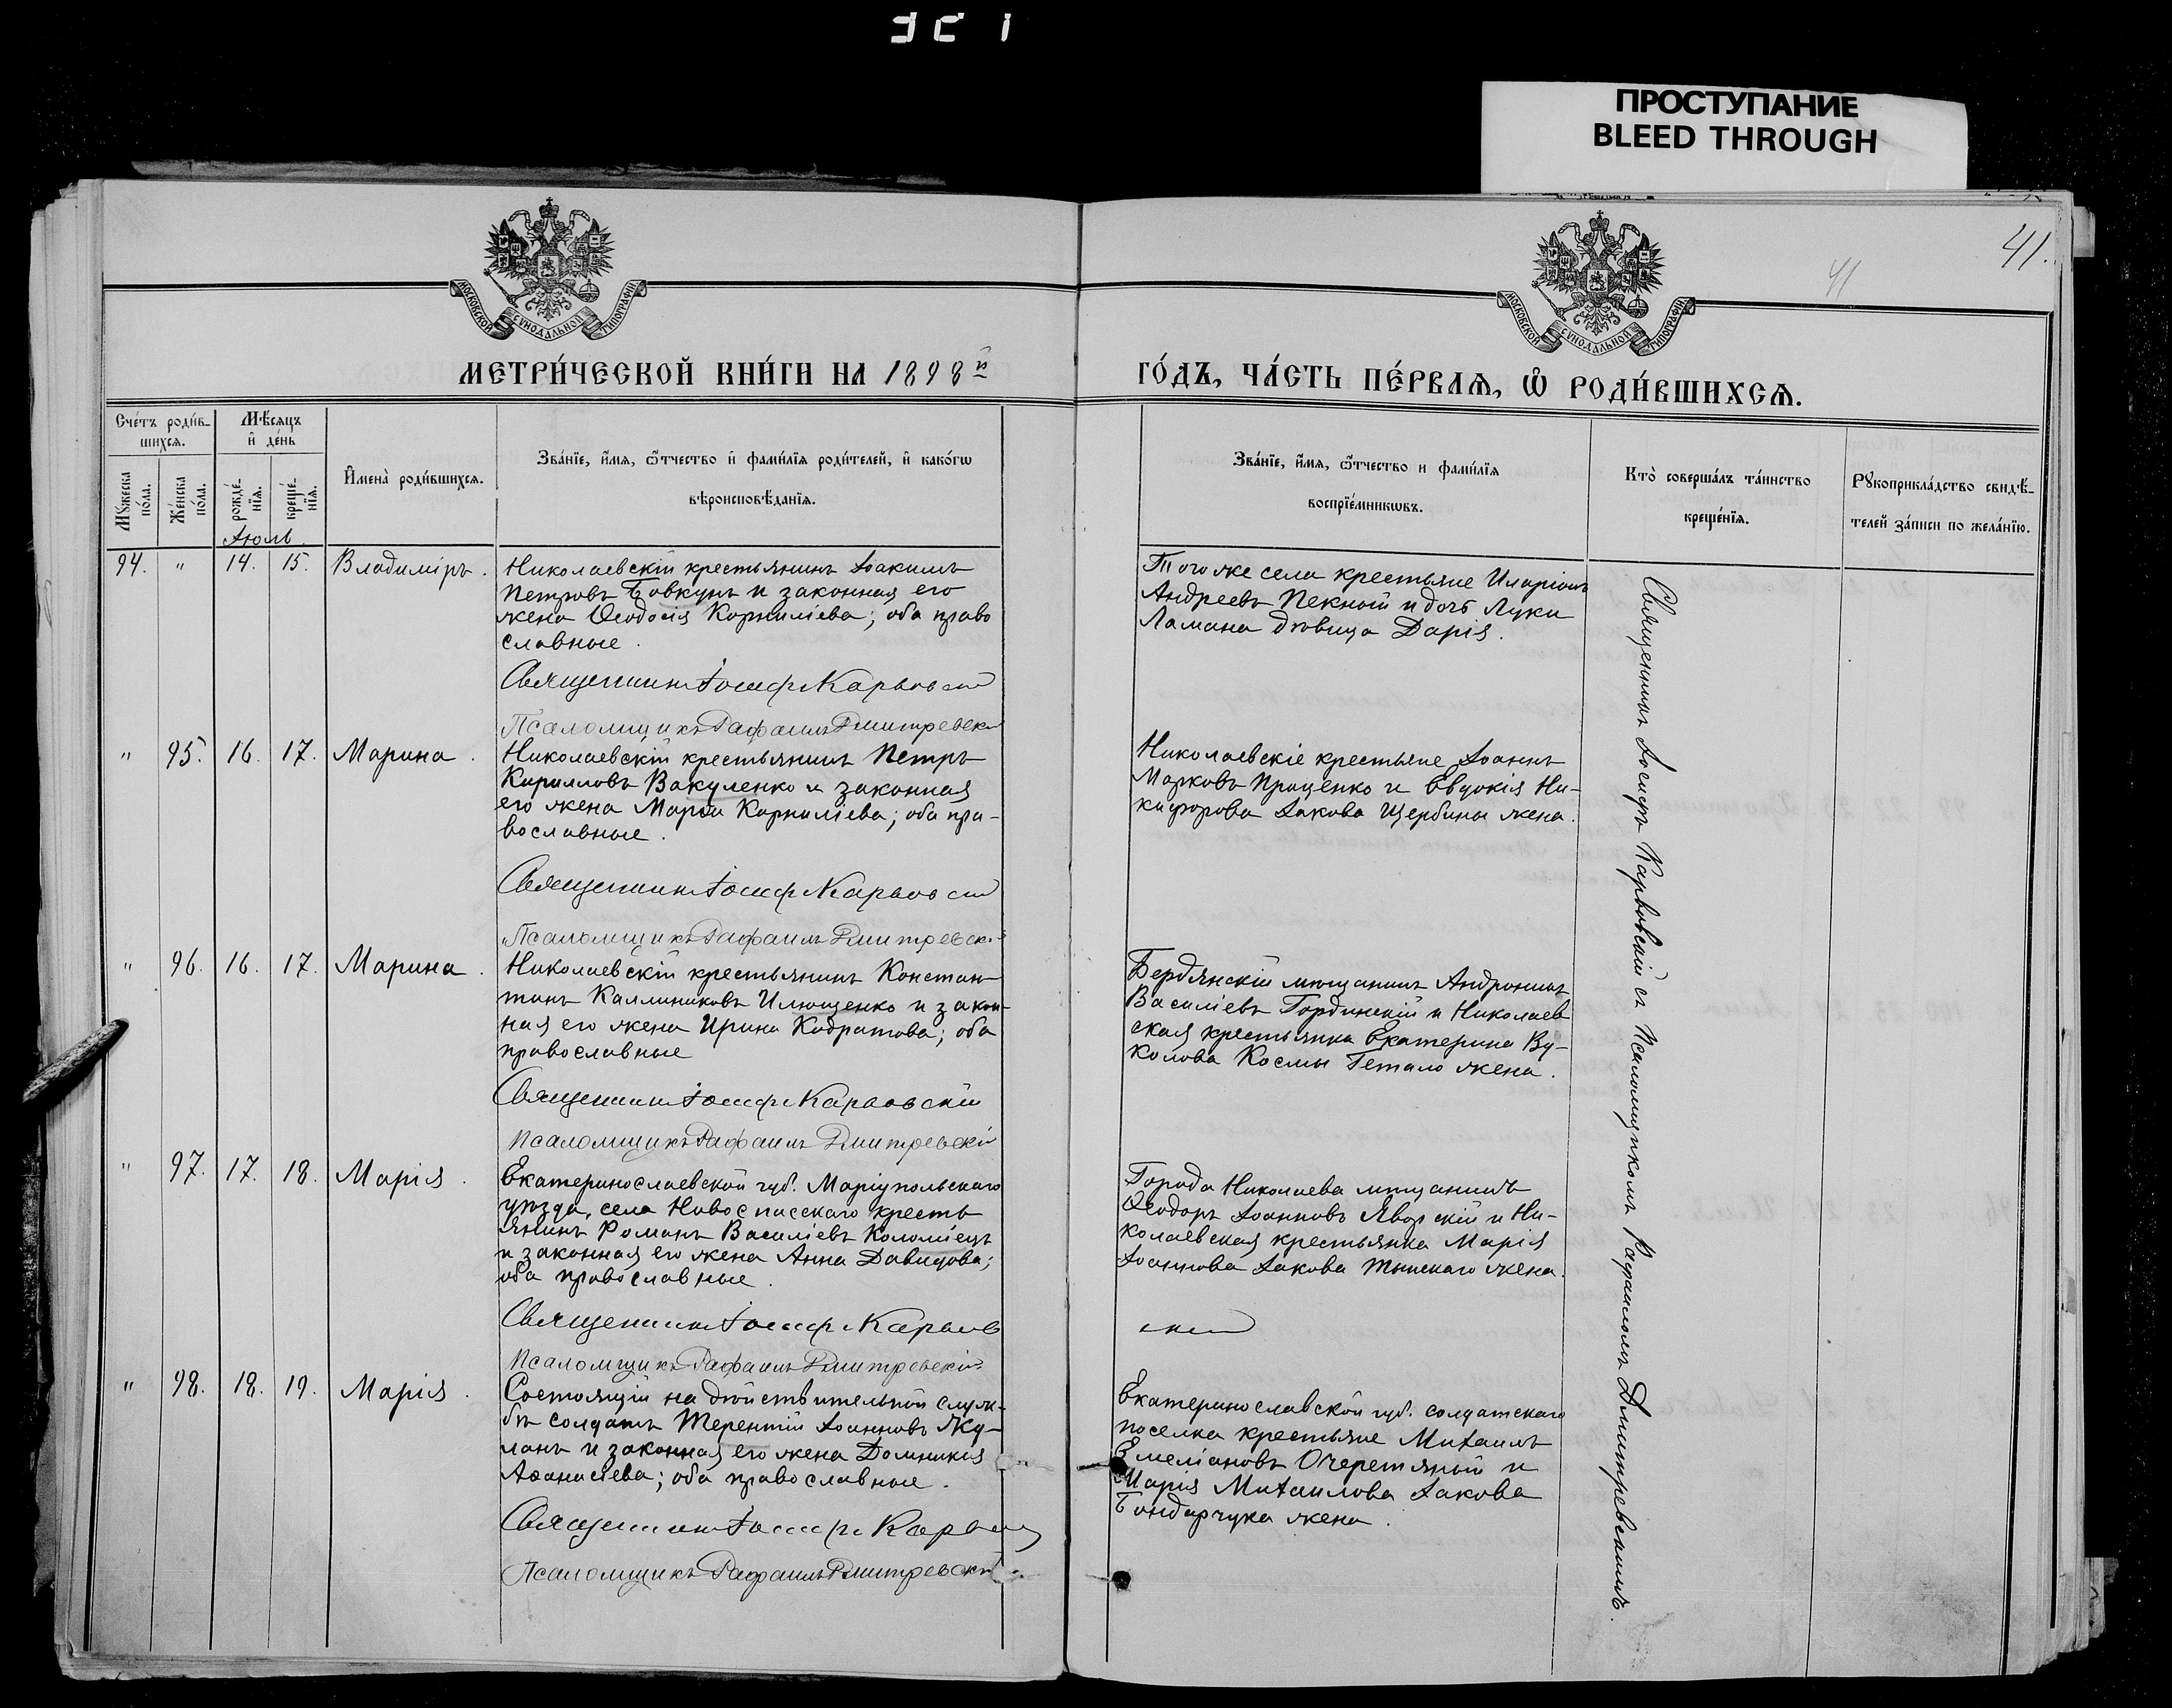 ПРОСТУПАНИЕ
BLEED THROUGH
41.
41
МОСКОВСКОЙ СУНОДАЛЬНОЙ ТИПОГРАФІИ
МОСКОВСКОЙ СУНОДАЛЬНОЙ ТИПОГРАФІИ
МЕТРИ́ЧЕСКОЙ КНИ́ГИ НА 1898й
ГО́ДЪ, ЧА́СТЬ ПЕ́РВАѦ, Ѿ РОДИ́ВШИХСѦ.
Сче́тъ роди́в-
шихсѧ.
Мѣ́сѧцъ
и҆ де́нь
Мꙋ́жеска
по́ла.
Же́нска
по́ла.
рожде́-
нїѧ.
креще́-
нїѧ.
И҆мена̀ роди́вшихсѧ.
Зва́нїе, и҆́мѧ, ѻ҆́тчество и҆ фами́лїѧ роди́телей, и҆ како́гѡ
вѣроисповѣ́данїѧ.
Зва́нїе, и҆́мѧ, ѻ҆́тчество и фами́лїѧ
воспрїе́мникѡвъ.
Кто̀ соверша́лъ та́инство
креще́нїѧ.
Рꙋкоприкла́дство свидѣ́-
телей за́писи по жела́нїю.
Іюль.
94. " 14. 15. Владиміръ.
Николаевскій крестьянинъ Іоакимъ
Петровъ Бовкунъ и законная его
жена Ѳеодосія Корниліева; оба право
славные.
Священникъ Іосифъ Карвовскій
Псаломщикъ Рафаилъ Дмитревскій
Того же села крестьяне Иларіонъ
Андреевъ Пекный и дочь Луки
Ламана дѣвица Дарія.
" 95. 16. 17. Марина.
Николаевскій крестьянинъ Петръ
Кирилловъ Вакуленко и законная
его жена Марѳа Корниліева; оба пра-
вославные.
Священникъ Іосифъ Карвовскій
Псаломщикъ Рафаилъ Дмитревскій
Николаевскіе крестьяне Іоаннъ
Марковъ Проценко и Евдокія Ни-
кифорова Іакова Щербины жена.
" 96. 16. 17. Марина.
Николаевскій крестьянинъ Констан-
тинъ Каллиниковъ Илющенко и закон-
ная его жена Ирина Кодратова; оба
православные
Священникъ Іосифъ Карвовскій
Псаломщикъ Рафаилъ Дмитревскій
Бердянскій мѣщанинъ Андроникъ
Василіевъ Гординскій и Николаев
ская крестьянка Екатерина Ву-
колова Космы Гетало жена.
" 97. 17. 18. Марія.
Екатеринославской губ. Маріупольскаго
уѣзда, села Новоспасскаго кресть
янинъ Романъ Василіевъ Коломіецъ
и законная его жена Анна Давидова;
оба православные.
Священникъ Іосифъ Карвов
скій
Псаломщикъ Рафаилъ Дмитревскій
Города Николаева мѣщанинъ
Ѳеодоръ Іоанновъ Яворскій и Ни-
колаевская крестьянка Марія
Іоаннова Іакова жена.
" 98. 18. 19. Марія.
Состоящій на дѣйствительной служ-
бѣ солдатъ Терентій Іоанновъ Жу-
ланъ и законная его жена Домникія
Аѳанасіева; оба православные.
Священникъ Іосифъ Карвовскій
Псаломщикъ Рафаилъ Дмитревскій.
Екатеринославской губ. солдатскаго
поселка крестьяне Михаилъ
Емеліановъ Очеретяный и
Марія Михаилова Іакова
Бондарчука жена.
Священникъ Іосифъ Карвовскій съ Псаломщикомъ Рафаиломъ Дмитревскимъ.